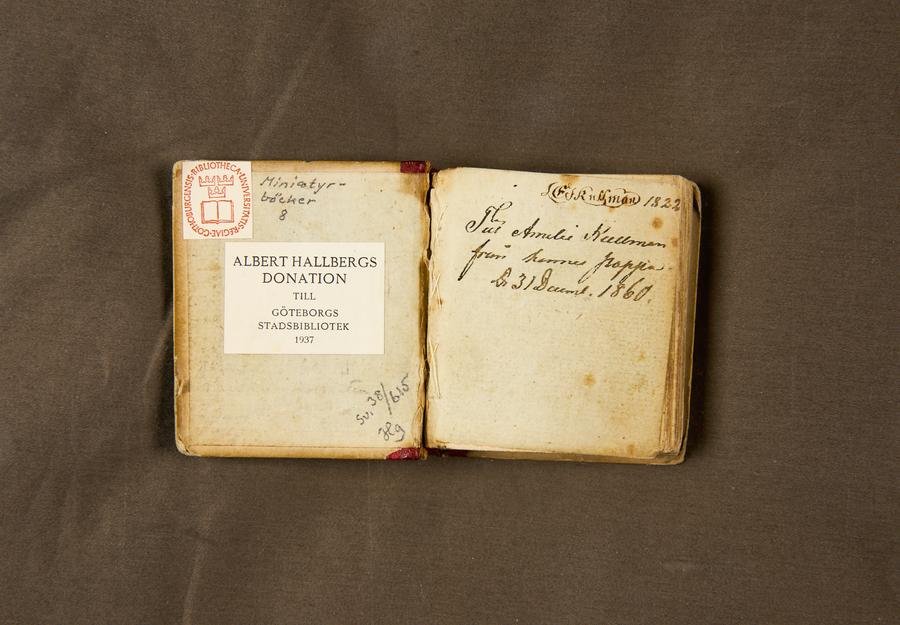 BIBLIOTHECA·UNIVERSITATIS·REGIAE·GOTHOBURGENSIS·
Miniatyr-
böcker
8
ALBERT HALLBERGS
DONATION
TILL
GÖTEBORGS
STADSBIBLIOTEK
1937
Sv. 38/615
Hg
Kullman 1822
Till Amelie Kullman
från hennes Pappa
31 Decemb. 1860.